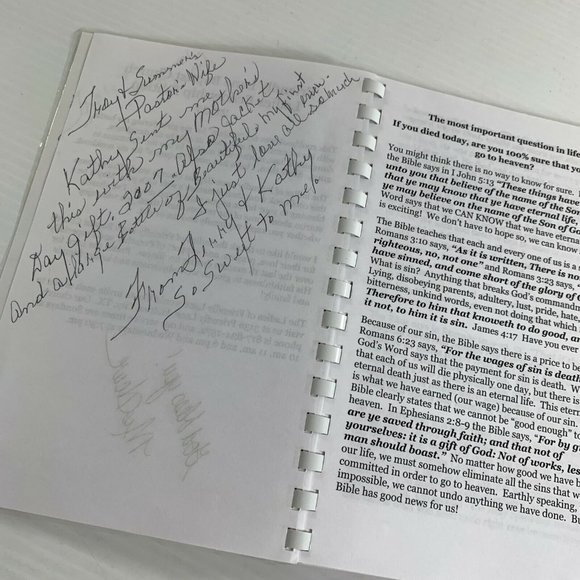 Troy & Summons
Pastor's Wife
Kathy sent me
this with my Mother's
Day gift. 2007. Also Jacket
and a large Bottle of Beautiful my first
I just love all so much
From Jimmy & Kathy
So Sweet to me!
The most important question in life
If you died today, are you 100% sure that yo
go to heaven?
You might think there is no way to know for sure.
the Bible says in I John 5:13 "These things have
unto you that believe of the name of the So
that ye may know that ye have eternal life
ye may believe on the name of the Son of Go
Word says that we CAN KNOW that we have etern
is exciting! We don't have to hope so, we can know
The Bible teaches that each and every one of us is a
Romans 3:10 says, "As it is written, There is no
righteous, no, not one" and Romans 3:23 says, "
have sinned, and come short of the glory of
What is sin? Anything that breaks God's commandm
Lying, disobeying parents, adultery, lust, pride, hate,
bitterness, unkind words, even not doing that which
Therefore to him that knoweth to do good, an
it not, to him it is sin. James 4:17 Have you ever
Because of our sin, the Bible says there is a price to be
Romans 6:23 says, "For the wages of sin is death
God's Word says that the payment for sin is death. W
that each of us will die physically one day, but there is
eternal death just as there is an eternal life. This etern
is what we have earned (our wage) because of our sin.
Bible clearly states that we cannot be "good enough" to
heaven. In Ephesians 2:8-9 the Bible says, "For by g
are ye saved through faith; and that not of
yourselves: it is a gift of God: Not of works, les
man should boast." No matter how good we have b
our life, we must somehow eliminate all the sins that w
committed in order to go to heaven. Earthly speaking,
impossible, we cannot undo anything we have done. Bu
Bible has good news for us!